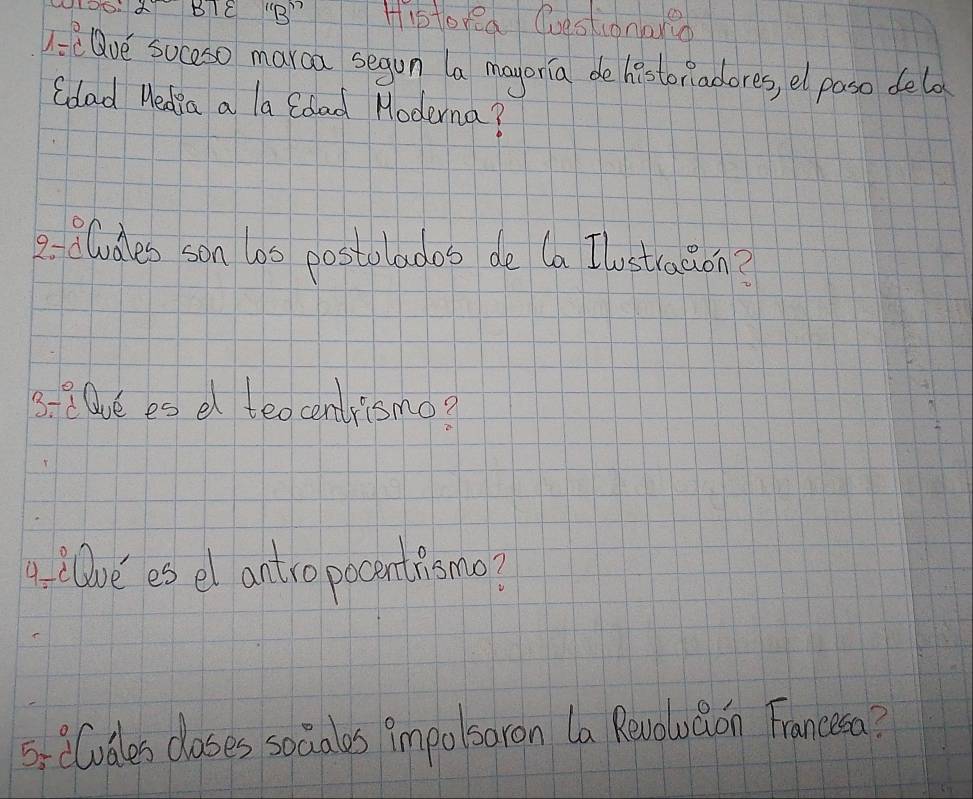 2 BTE "B" Historia Cuestionario
1-¿Qué suceso marca segun la mayoría de historiadores, el paso de la
Edad Media a la Edad Moderna?
2-¿Cuáles son los postulados de la Ilustración?
3-¿Qué es el teocentrismo?
4-¿Qué es el antropocentrismo?
5-¿Cuáles clases sociales impulsaron la Revolución Francesa?